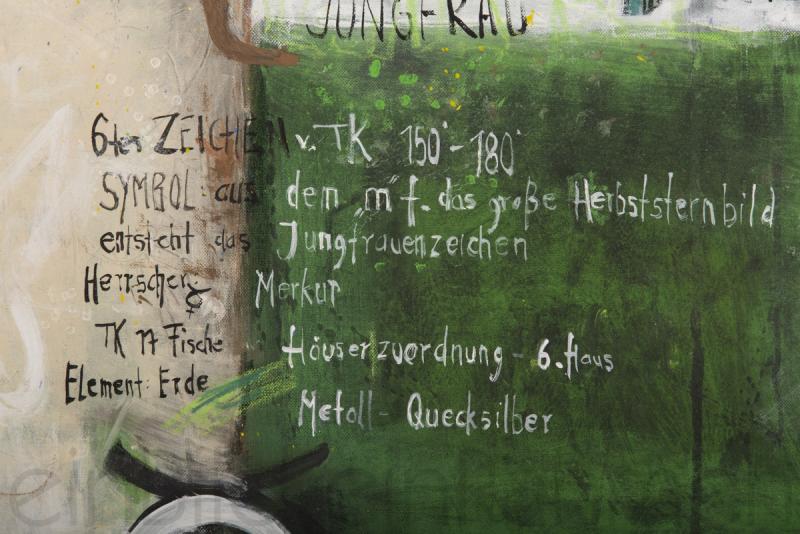 JUNGFRAU
6ter ZEICHEN v. TK 150°-180°
SYMBOL: aus dem "m" f. das große Herbststernbild
entsteht das Jungfrauenzeichen
Herrscher: ☿ Merkur
TK 17 Fische Häuserzuordnung - 6. Haus
Element: Erde
Metall - Quecksilber